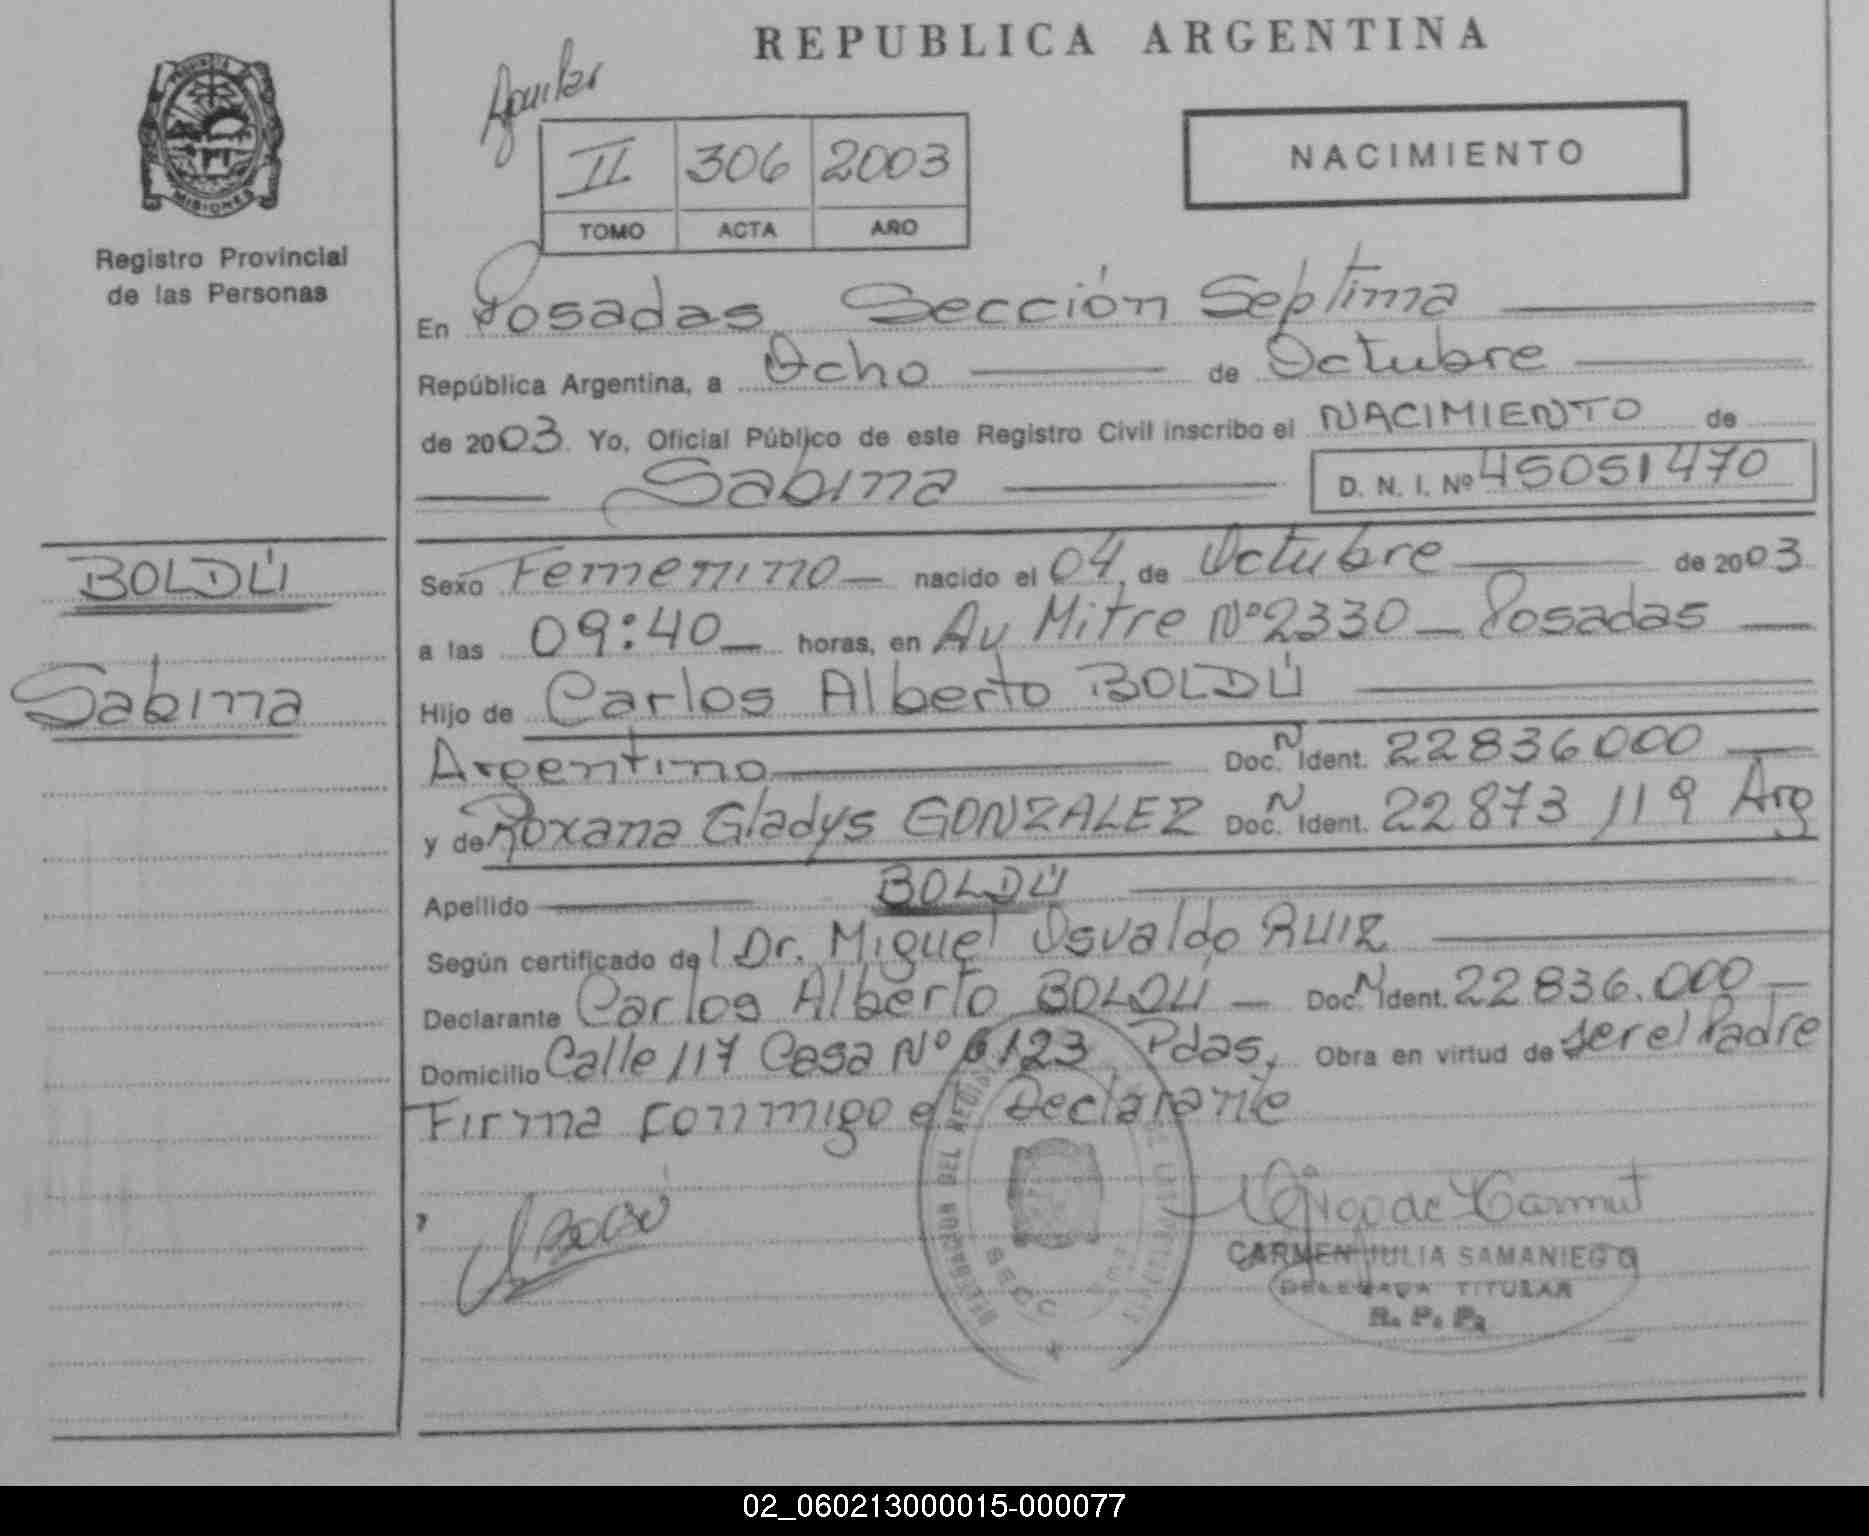 REPUBLICA ARGENTINA
Aguiler
PROVINCIA DE
MISIONES
Registro Provincial
de las Personas
II 306 2003
TOMO ACTA AÑO
NACIMIENTO
En Posadas Sección Septima
República Argentina, a Ocho de Octubre
de 2003. Yo, Oficial Público de este Registro Civil inscribo el NACIMIENTO de
Sabina D. N. I. Nº 45051470
BOLDÚ
Sabina
Sexo Femenino nacido el 04, de Octubre de 2003
a las 09:40 horas, en Av Mitre Nº 2330 - Posadas
Hijo de Carlos Alberto BOLDÚ
Argentino Doc. N Ident. 22836000
y de Roxana Gladys GONZALEZ Doc. N Ident. 22873119 Arg
Apellido BOLDÚ
Según certificado del Dr. Miguel Osvaldo RUIZ
Declarante Carlos Alberto BOLDÚ - Doc. N Ident. 22836.000
Domicilio Calle 117 Casa Nº 6123 Pdas, Obra en virtud de ser el Padre
Firma conmigo el Declarante
CARMEN JULIA SAMANIEGO
DELEGADA TITULAR
R. P. P.
02_060213000015-000077